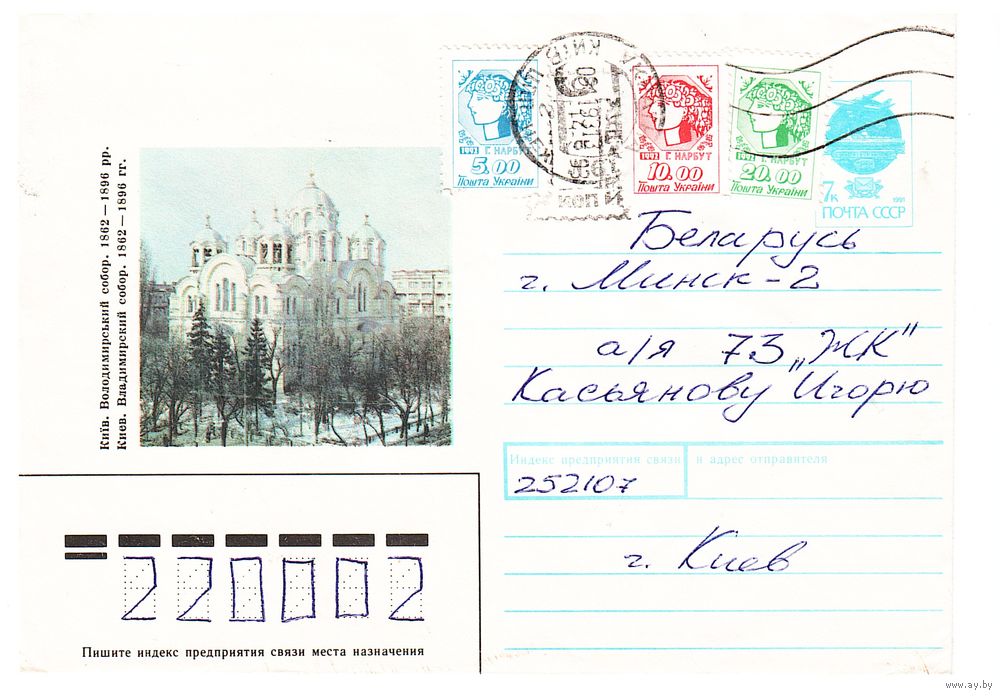 Київ. Володимирський собор. 1862—1896 рр.
Киев. Владимирский собор. 1862—1896 гг.
1992 Г. НАРБУТ
5.00
Пошта України
1992 Г. НАРБУТ
10.00
Пошта України
1992 Г. НАРБУТ
20.00
Пошта України
1991
7к
ПОЧТА СССР
КИЇВ
Беларусь
г. Минск-2
а/я 73 „ЖК"
Касьянову Игорю
Индекс предприятия связи и адрес отправителя
252107
г. Киев
220002
Пишите индекс предприятия связи места назначения
www.ay.by